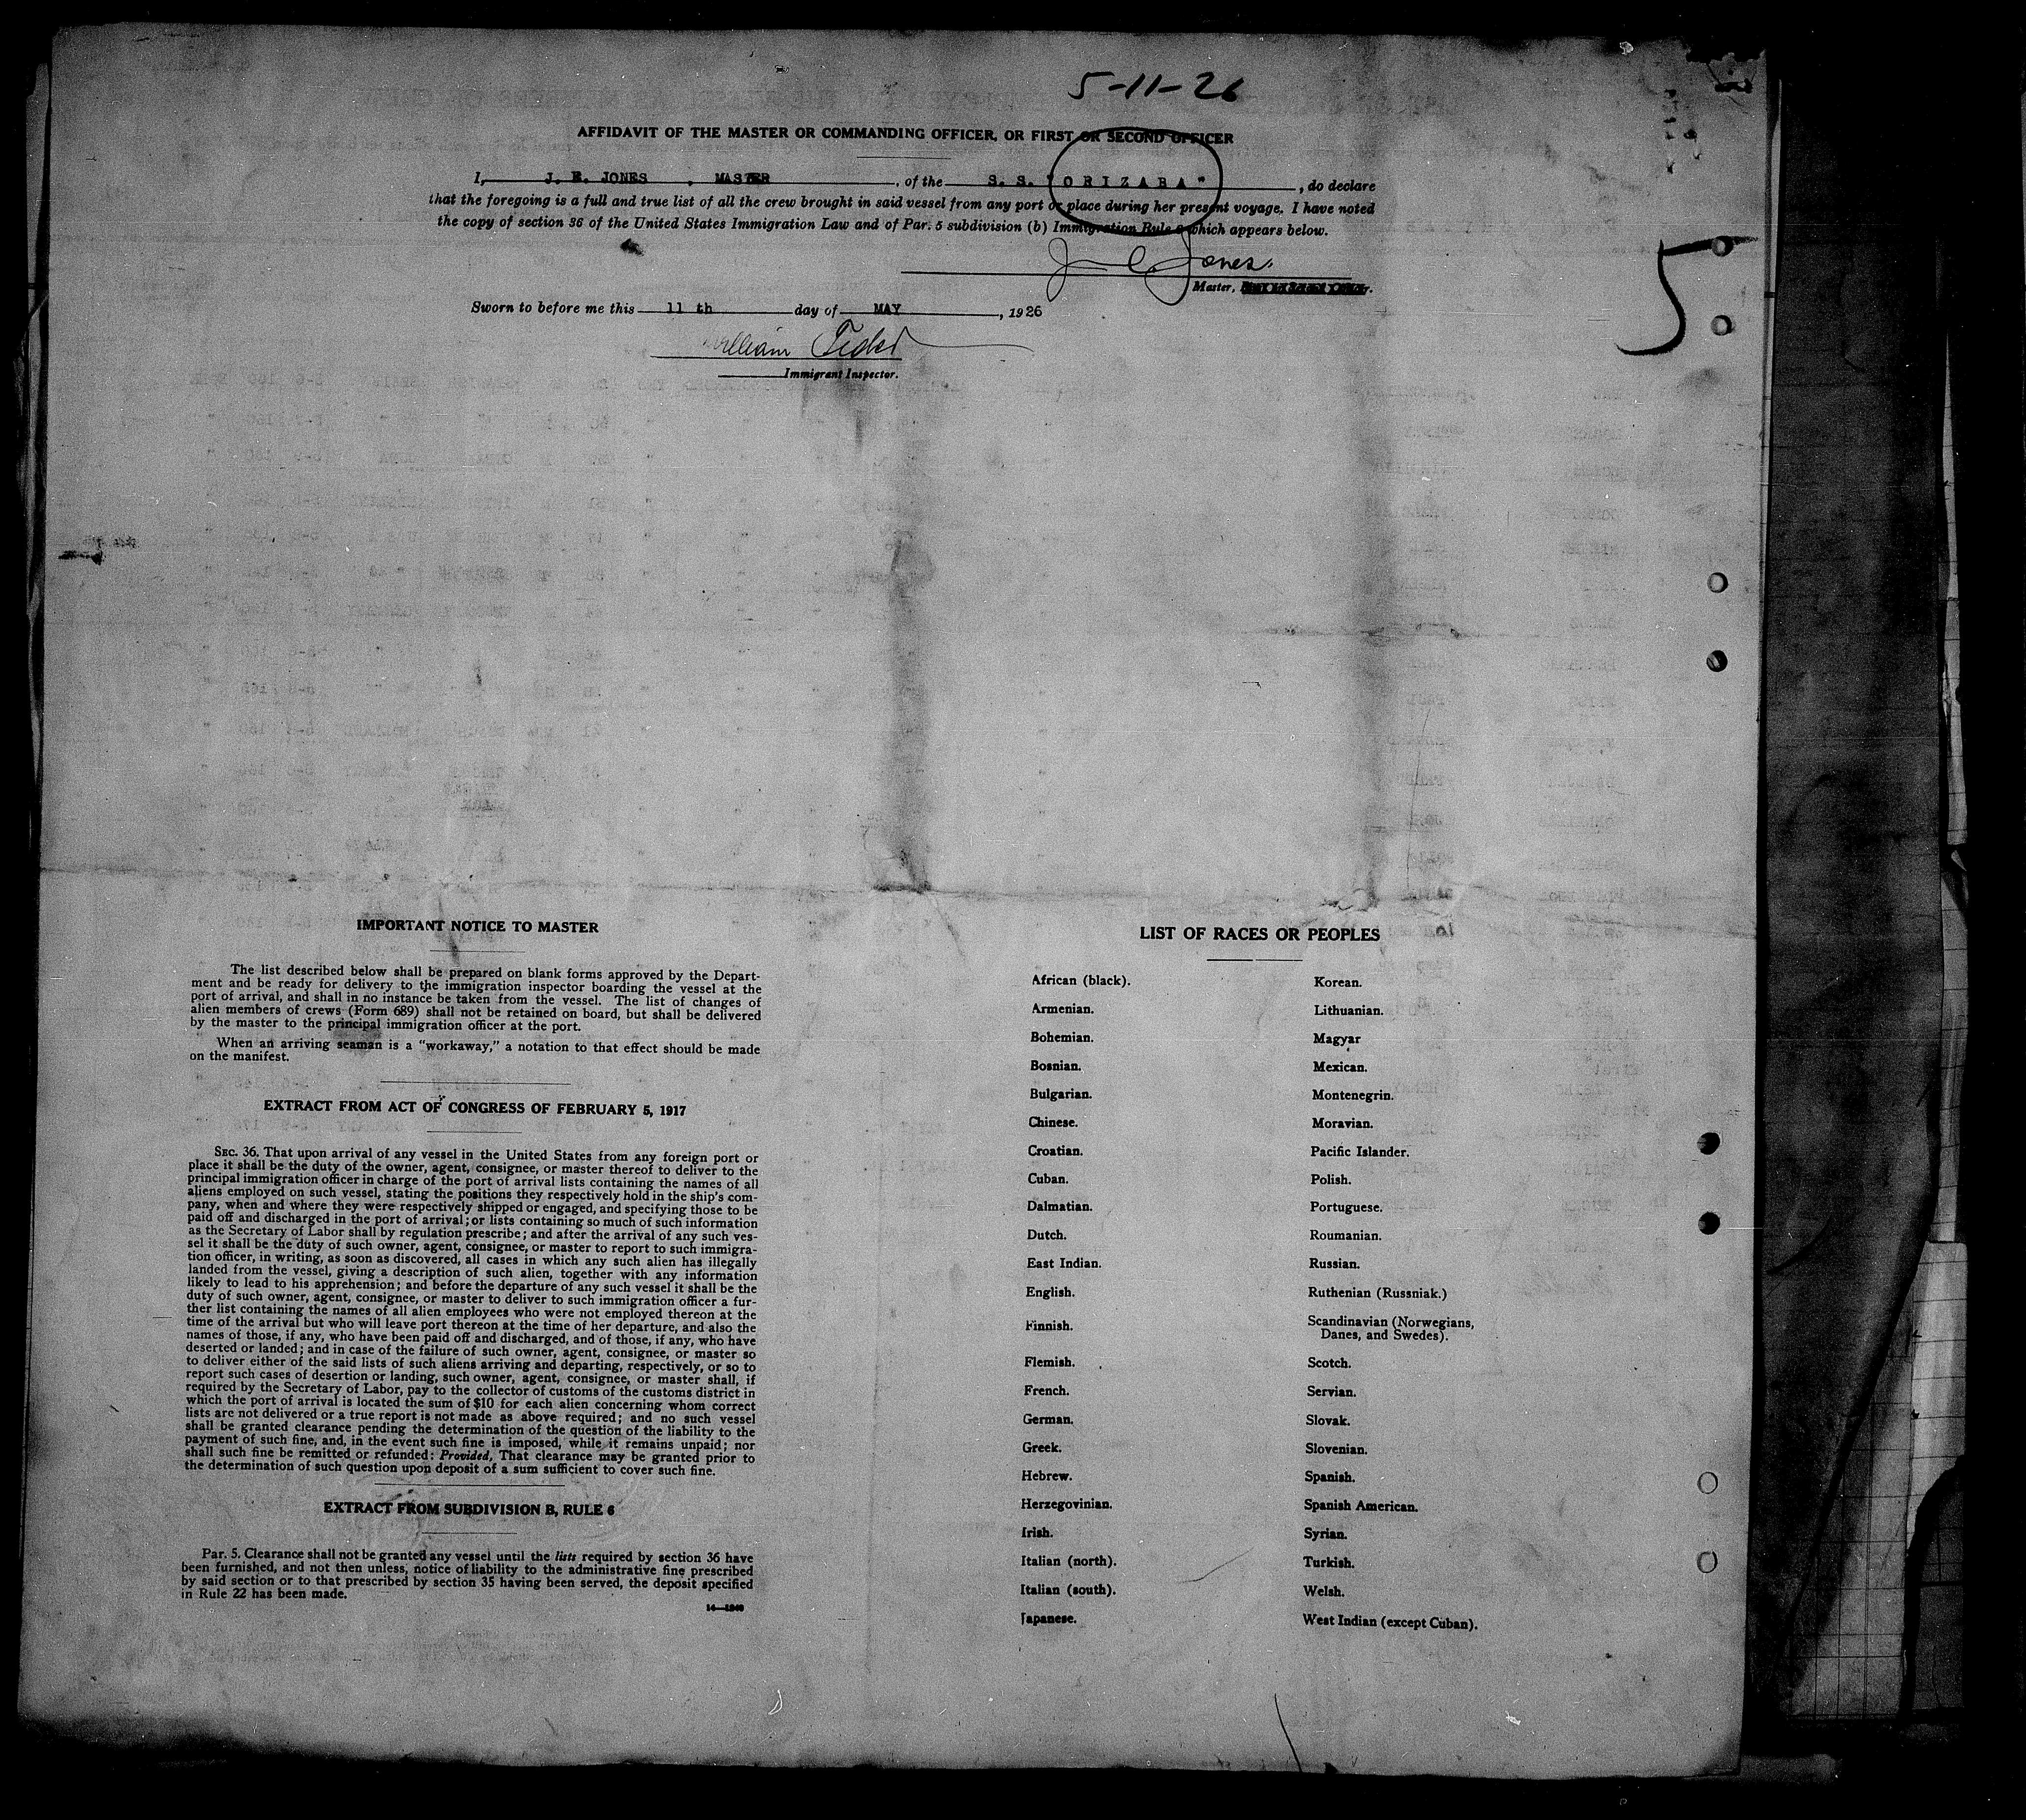 5-11-26
AFFIDAVIT OF THE MASTER OR COMMANDING OFFICER, OR FIRST OR SECOND OFFICER
I, J. E. JONES, MASTER, of the S. S. "ORIZABA", do declare
that the foregoing is a full and true list of all the crew brought in said vessel from any port or place during her present voyage. I have noted
the copy of section 36 of the United States Immigration Law and of Par. 5 subdivision (b) Immigration Rule which appears below.
Jones
Master,
Sworn to before me this 11 th day of MAY, 1926
William
Immigrant Inspector.
5
IMPORTANT NOTICE TO MASTER
The list described below shall be prepared on blank forms approved by the Depart-
ment and be ready for delivery to the immigration inspector boarding the vessel at the
port of arrival, and shall in no instance be taken from the vessel. The list of changes of
alien members of crews (Form 689) shall not be retained on board, but shall be delivered
by the master to the principal immigration officer at the port.
When an arriving seaman is a "workaway," a notation to that effect should be made
on the manifest.
EXTRACT FROM ACT OF CONGRESS OF FEBRUARY 5, 1917
SEC. 36. That upon arrival of any vessel in the United States from any foreign port or
place it shall be the duty of the owner, agent, consignee, or master thereof to deliver to the
principal immigration officer in charge of the port of arrival lists containing the names of all
aliens employed on such vessel, stating the positions they respectively hold in the ship's com-
pany, when and where they were respectively shipped or engaged, and specifying those to be
paid off and discharged in the port of arrival; or lists containing so much of such information
as the Secretary of Labor shall by regulation prescribe; and after the arrival of any such ves-
sel it shall be the duty of such owner, agent, consignee, or master to report to such immigra-
tion officer, in writing, as soon as discovered, all cases in which any such alien has illegally
landed from the vessel, giving a description of such alien, together with any information
likely to lead to his apprehension; and before the departure of any such vessel it shall be the
duty of such owner, agent, consignee, or master to deliver to such immigration officer a fur-
ther list containing the names of all alien employees who were not employed thereon at the
time of the arrival but who will leave port thereon at the time of her departure, and also the
names of those, if any, who have been paid off and discharged, and of those, if any, who have
deserted or landed; and in case of the failure of such owner, agent, consignee, or master so
to deliver either of the said lists of such aliens arriving and departing, respectively, or so to
report such cases of desertion or landing, such owner, agent, consignee, or master shall, if
required by the Secretary of Labor, pay to the collector of customs of the customs district in
which the port of arrival is located the sum of $10 for each alien concerning whom correct
lists are not delivered or a true report is not made as above required; and no such vessel
shall be granted clearance pending the determination of the question of the liability to the
payment of such fine, and, in the event such fine is imposed, while it remains unpaid; nor
shall such fine be remitted or refunded: Provided, That clearance may be granted prior to
the determination of such question upon deposit of a sum sufficient to cover such fine.
EXTRACT FROM SUBDIVISION B, RULE 6
Par. 5. Clearance shall not be granted any vessel until the lists required by section 36 have
been furnished, and not then unless, notice of liability to the administrative fine prescribed
by said section or to that prescribed by section 35 having been served, the deposit specified
in Rule 22 has been made.
LIST OF RACES OR PEOPLES
African (black).
Armenian.
Bohemian.
Bosnian.
Bulgarian.
Chinese.
Croatian.
Cuban.
Dalmatian.
Dutch.
East Indian.
English.
Finnish.
Flemish.
French.
German.
Greek.
Hebrew.
Herzegovinian.
Irish.
Italian (north).
Italian (south).
Japanese.
Korean.
Lithuanian.
Magyar
Mexican.
Montenegrin.
Moravian.
Pacific Islander.
Polish.
Portuguese.
Roumanian.
Russian.
Ruthenian (Russniak.)
Scandinavian (Norwegians,
Danes, and Swedes).
Scotch.
Servian.
Slovak.
Slovenian.
Spanish.
Spanish American.
Syrian.
Turkish.
Welsh.
West Indian (except Cuban).